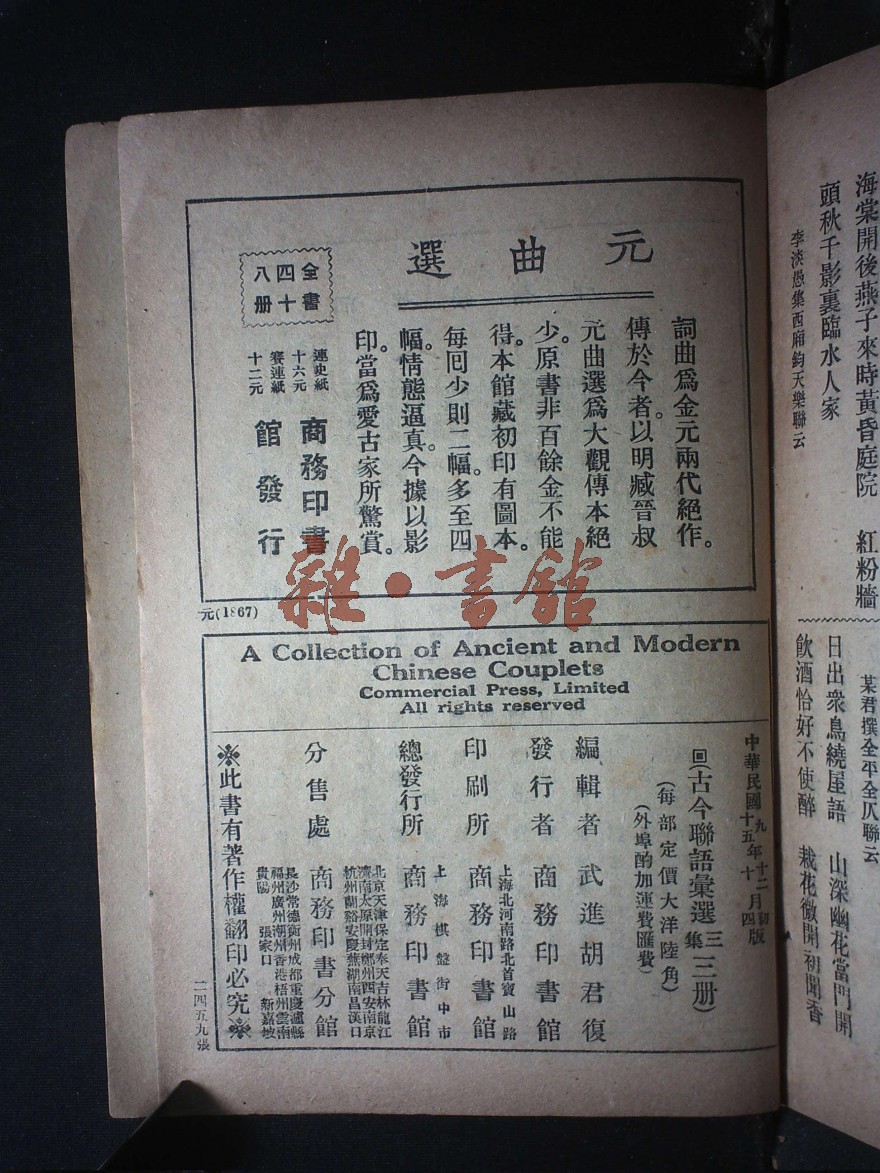 海棠開後燕子來時黃昏庭院　紅粉牆
頭秋千影裏臨水人家
李淡愚集西廂鈞天樂聯云
某君撰全平全仄聯云
日出衆鳥繞屋語　山深幽花當門開
飲酒恰好不使醉　栽花微開初聞香
元曲選
詞曲爲金元兩代絕作。
傳於今者。以明臧晉叔
元曲選爲大觀傳本絕
少。原書非百餘金不能
得。本館藏初印有圖本。
每囘少則二幅。多至四
幅。情態逼真。今據以影
印當爲愛古家所驚賞。
全書
四十
八册
連史紙
十六元
賽連紙
十二元
商務印書
館發行
元(1867)
雜·書館
A Collection of Ancient and Modern
Chinese Couplets
Commercial Press, Limited
All rights reserved
中華民國九年十二月初版
十五年十月四版
回(古今聯語彙選三集三册)
(每部定價大洋陸角)
(外埠酌加運費匯費)
編輯者　武進胡君復
發行者　商務印書館
上海北河南路北首寶山路
印刷所　商務印書館
上海棋盤街中市
總發行所　商務印書館
北京天津保定奉天吉林龍江
濟南太原開封鄭州西安南京
杭州蘭谿安慶蕪湖南昌漢口
分售處　商務印書分館
長沙常德衡州成都重慶瀘縣
福州廣州潮州香港梧州雲南
貴陽　張家口　新嘉坡
※此書有著作權翻印必究※
二四五九張